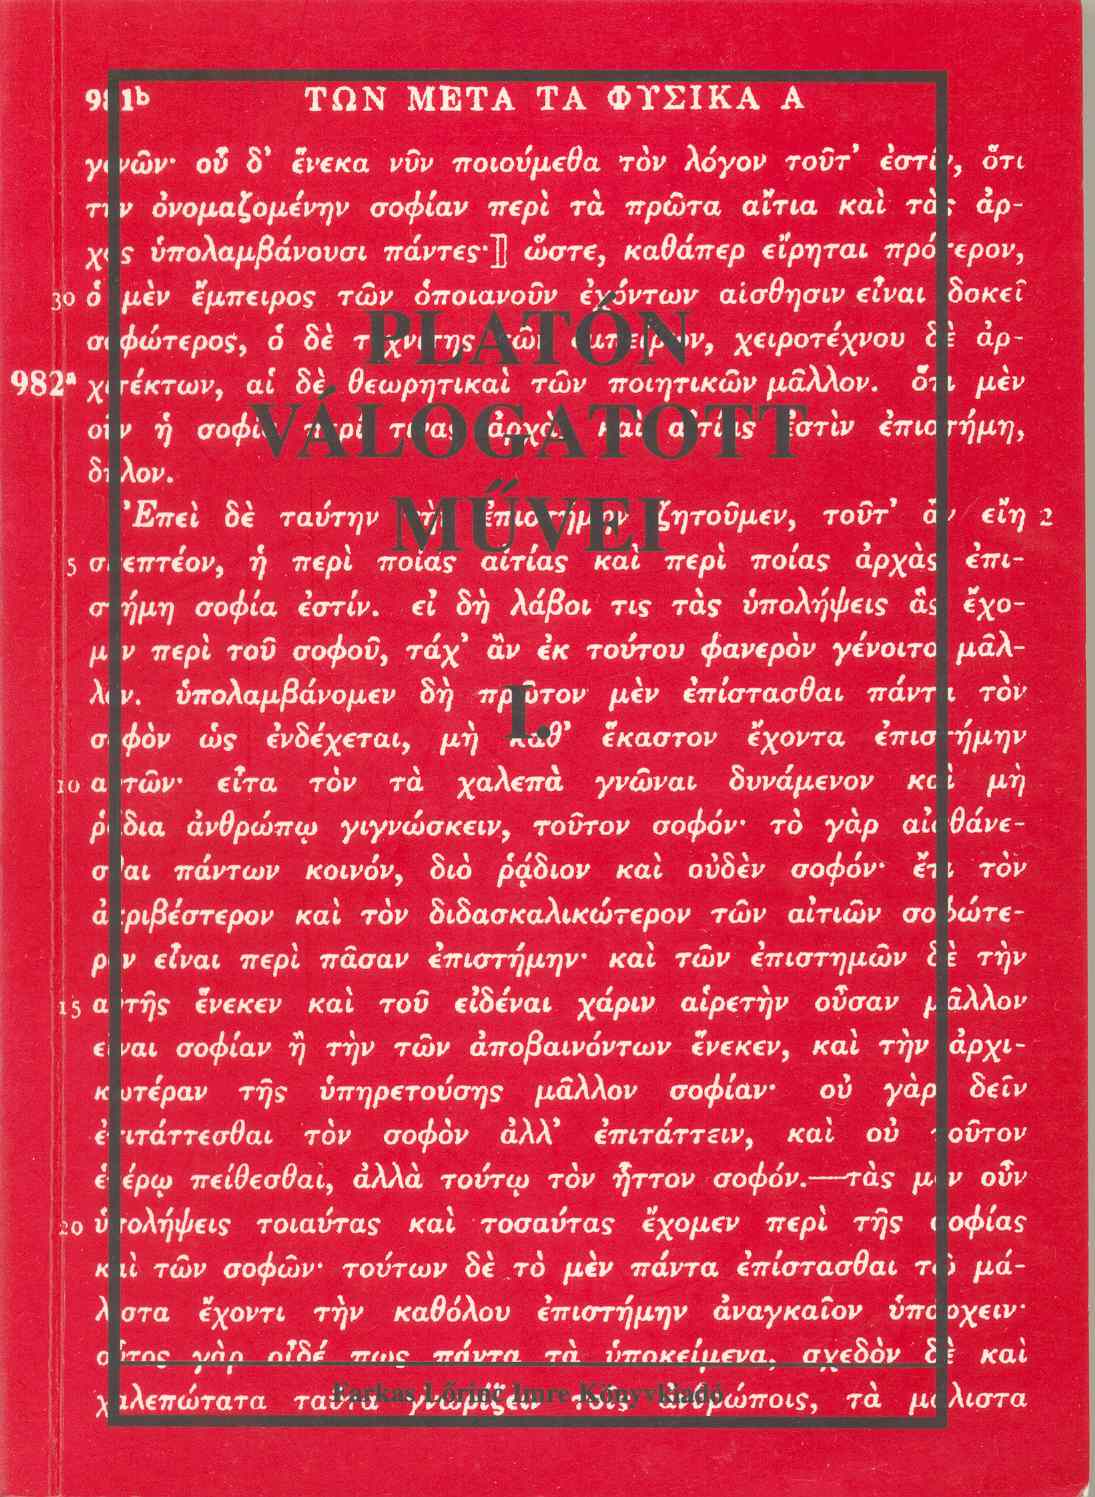 981b ΤΩΝ ΜΕΤΑ ΤΑ ΦΥΣΙΚΑ Α
γενῶν· οὗ δ’ ἕνεκα νῦν ποιούμεθα τὸν λόγον τοῦτ’ ἐστίν, ὅτι
τὴν ὀνομαζομένην σοφίαν περὶ τὰ πρῶτα αἴτια καὶ τὰς ἀρ-
χὰς ὑπολαμβάνουσι πάντες·] ὥστε, καθάπερ εἴρηται πρότερον,
30 ὁ μὲν ἔμπειρος τῶν ὁποιανοῦν ἐχόντων αἴσθησιν εἶναι δοκεῖ
σοφώτερος, ὁ δὲ τεχνίτης τῶν ἐμπείρων, χειροτέχνου δὲ ἀρ-
982a χιτέκτων, αἱ δὲ θεωρητικαὶ τῶν ποιητικῶν μᾶλλον. ὅτι μὲν
οὖν ἡ σοφία περί τινας ἀρχὰς καὶ αἰτίας ἐστὶν ἐπιστήμη,
δῆλον.
Ἐπεὶ δὲ ταύτην τὴν ἐπιστήμην ζητοῦμεν, τοῦτ’ ἂν εἴη 2
5 σκεπτέον, ἡ περὶ ποίας αἰτίας καὶ περὶ ποίας ἀρχὰς ἐπι-
στήμη σοφία ἐστίν. εἰ δὴ λάβοι τις τὰς ὑπολήψεις ἃς ἔχο-
μεν περὶ τοῦ σοφοῦ, τάχ’ ἂν ἐκ τούτου φανερὸν γένοιτο μᾶλ-
λον. ὑπολαμβάνομεν δὴ πρῶτον μὲν ἐπίστασθαι πάντα τὸν
σοφὸν ὡς ἐνδέχεται, μὴ καθ’ ἕκαστον ἔχοντα ἐπιστήμην
10 αὐτῶν· εἶτα τὸν τὰ χαλεπὰ γνῶναι δυνάμενον καὶ μὴ
ῥᾴδια ἀνθρώπῳ γιγνώσκειν, τοῦτον σοφόν· τὸ γὰρ αἰσθάνε-
σθαι πάντων κοινόν, διὸ ῥᾴδιον καὶ οὐδὲν σοφόν· ἔτι τὸν
ἀκριβέστερον καὶ τὸν διδασκαλικώτερον τῶν αἰτιῶν σοφώτε-
ρον εἶναι περὶ πᾶσαν ἐπιστήμην· καὶ τῶν ἐπιστημῶν δὲ τὴν
15 αὑτῆς ἕνεκεν καὶ τοῦ εἰδέναι χάριν αἱρετὴν οὖσαν μᾶλλον
εἶναι σοφίαν ἢ τὴν τῶν ἀποβαινόντων ἕνεκεν, καὶ τὴν ἀρχι-
κωτέραν τῆς ὑπηρετούσης μᾶλλον σοφίαν· οὐ γὰρ δεῖν
ἐπιτάττεσθαι τὸν σοφὸν ἀλλ’ ἐπιτάττειν, καὶ οὐ τοῦτον
ἑτέρῳ πείθεσθαι, ἀλλὰ τούτῳ τὸν ἧττον σοφόν.—τὰς μὲν οὖν
20 ὑπολήψεις τοιαύτας καὶ τοσαύτας ἔχομεν περὶ τῆς σοφίας
καὶ τῶν σοφῶν· τούτων δὲ τὸ μὲν πάντα ἐπίστασθαι τῷ μά-
λιστα ἔχοντι τὴν καθόλου ἐπιστήμην ἀναγκαῖον ὑπάρχειν·
οὗτος γὰρ οἶδέ πως πάντα τὰ ὑποκείμενα, σχεδὸν δὲ καὶ
χαλεπώτατα ταῦτα γνωρίζειν τοῖς ἀνθρώποις, τὰ μάλιστα
PLATÓN
VÁLOGATOTT
MŰVEI
I.
Farkas Lőrinc Imre Könyvkiadó